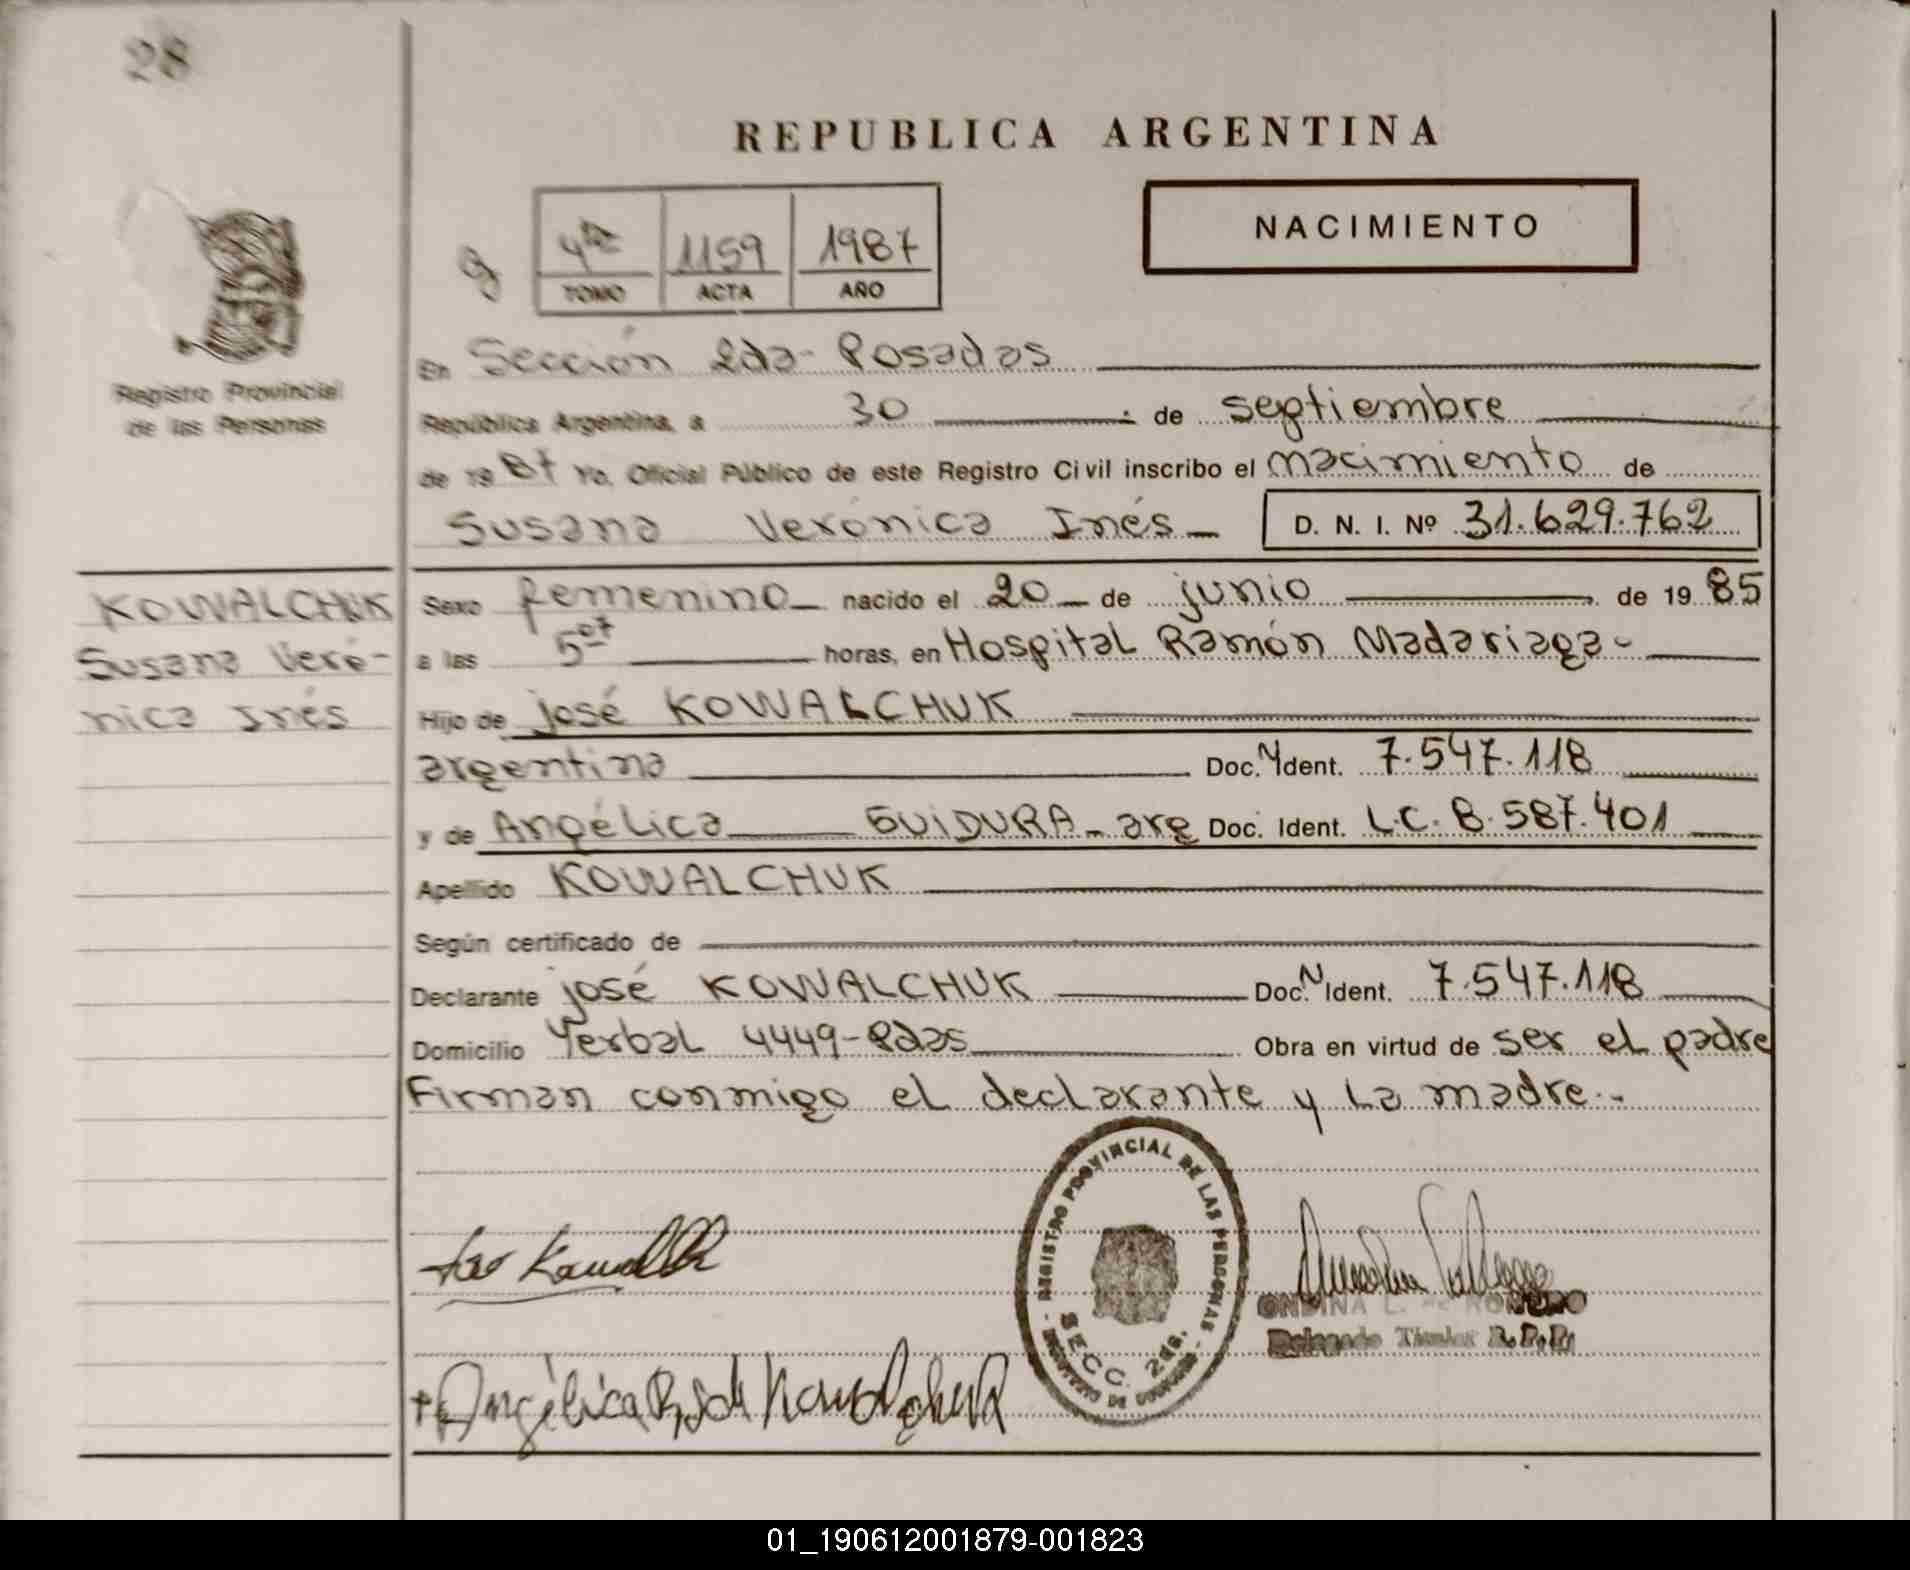 28
REPUBLICA ARGENTINA
NACIMIENTO
4to 1159 1987
TOMO ACTA AÑO
Registro Provincial
de las Personas
En Sección 2da- Posadas
República Argentina, a 30 de septiembre
de 1987 Yo, Oficial Público de este Registro Civil inscribo el nacimiento de
Susana Verónica Inés D. N. I. Nº 31.629.762
KOWALCHUK
Susana Veró-
nica Inés
Sexo femenino nacido el 20 de junio de 1985
a las 5 07 horas, en Hospital Ramón Madariaga-
Hijo de José KOWALCHUK
argentina Doc. N Ident. 7.547.118
y de Angélica GUIDURA - arg Doc. Ident. L.C. 8.587.401
Apellido KOWALCHUK
Según certificado de
Declarante José KOWALCHUK Doc. N Ident. 7.547.118
Domicilio Yerbal 4449-Pdas Obra en virtud de ser el padre
Firman conmigo el declarante y la madre.-
REGISTRO PROVINCIAL DE LAS PERSONAS
SECC. 2da.
ONDINA L. ROMERO
Delegado Titular R.P.P.
Angélica R. de Kowalchuk
01_190612001879-001823